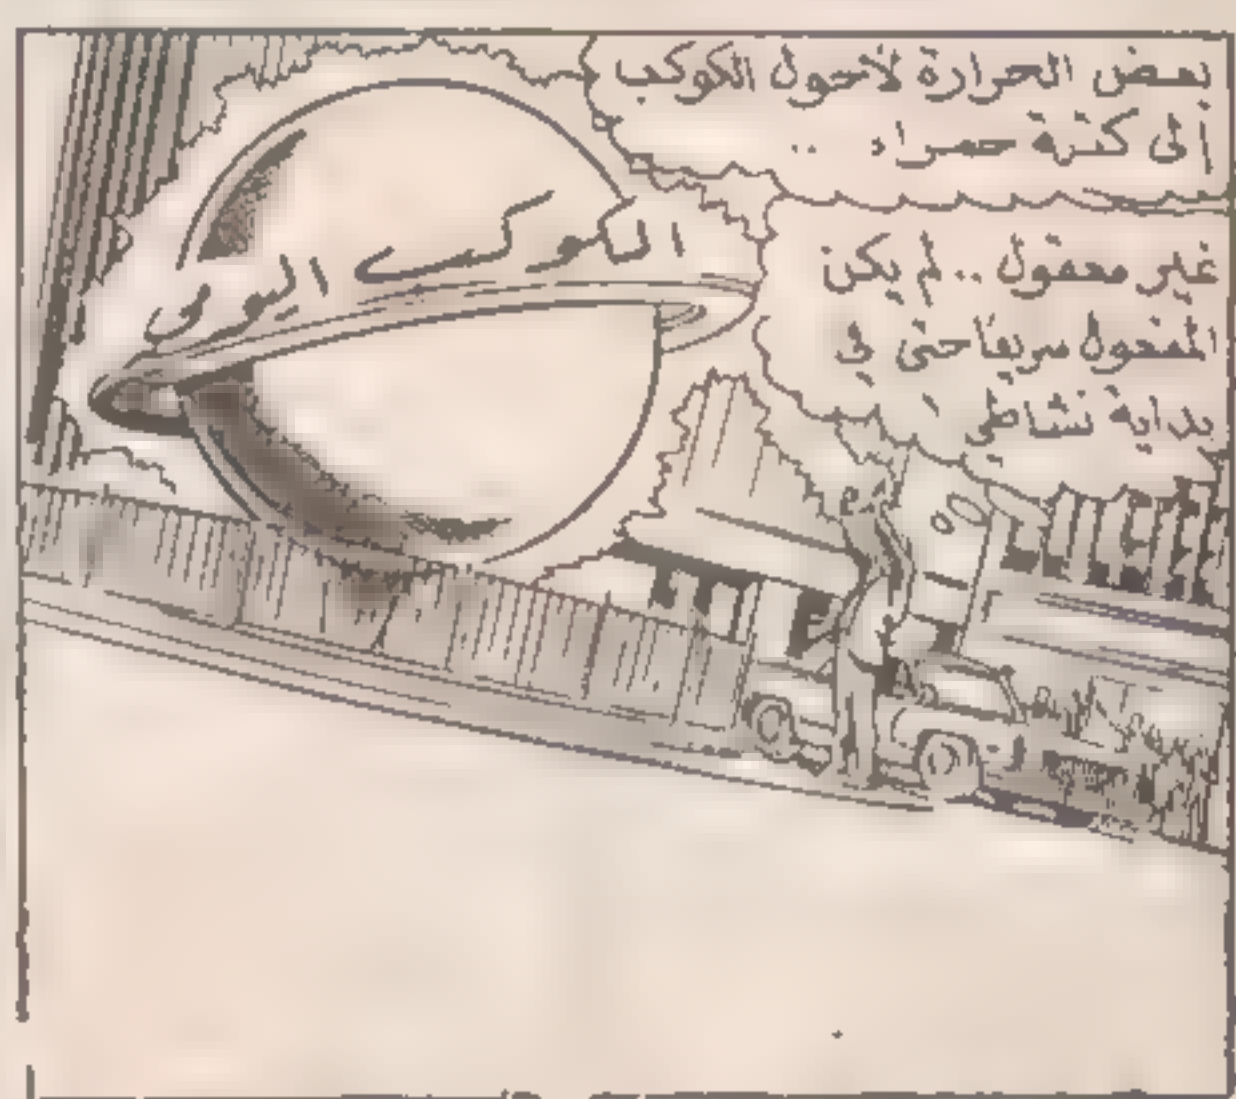 بعض الحرارة لأحول الكوكب
إلى كتلة حمراء ..
غير معقول .. لم يكن
المفعول سريعًا حتى في
بداية نشاطي
الكوكب اليومي